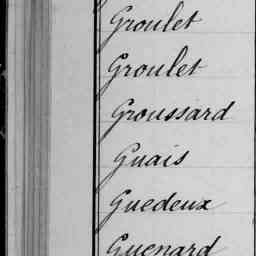 Groulet
Groulet
Groussard
Guais
Guedeux
Guenard